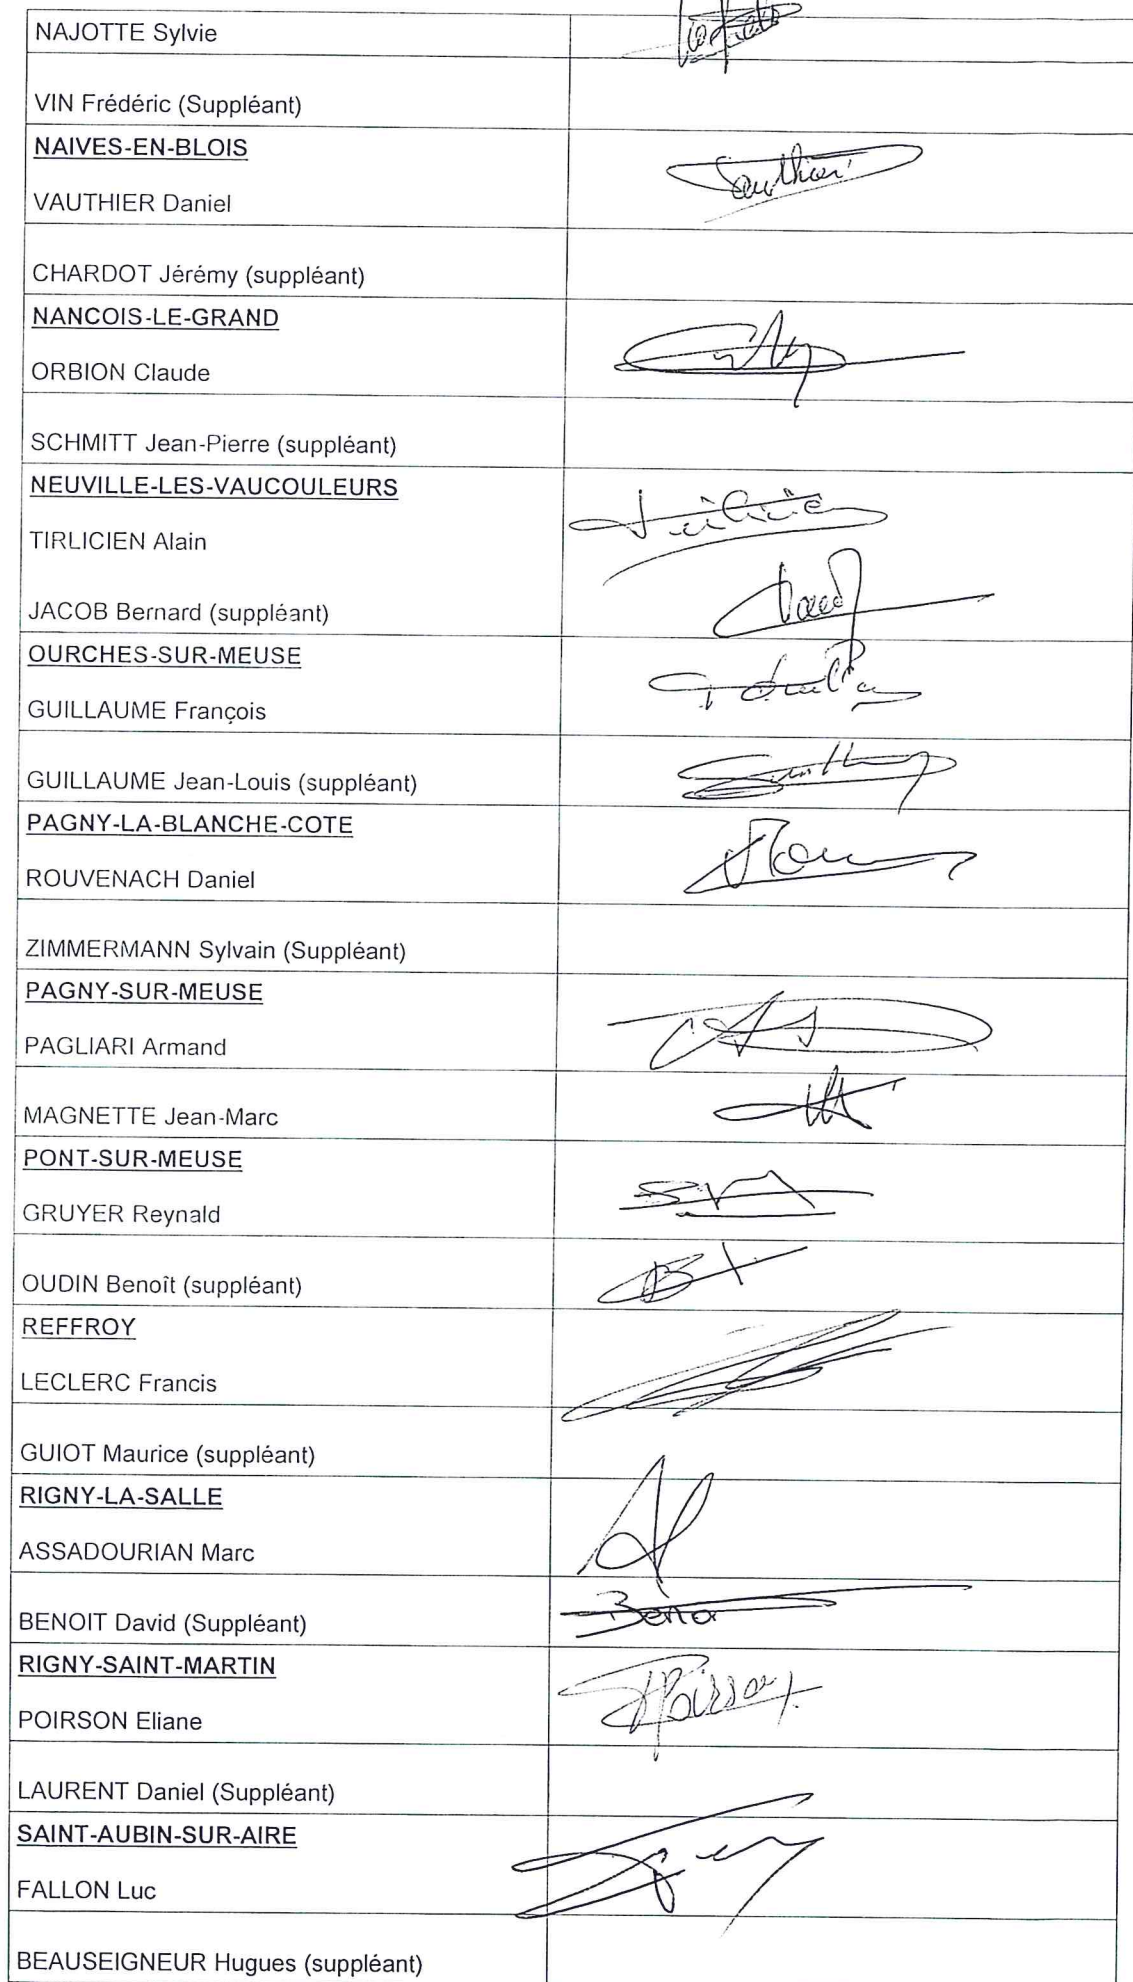 NAJOTTE Sylvie
VIN Frédéric (Suppléant)
NAIVES-EN-BLOIS
VAUTHIER Daniel
CHARDOT Jérémy (suppléant)
NANCOIS-LE-GRAND
ORBION Claude
SCHMITT Jean-Pierre (suppléant)
NEUVILLE-LES-VAUCOULEURS
TIRLICIEN Alain
JACOB Bernard (suppléant)
OURCHES-SUR-MEUSE
GUILLAUME François
GUILLAUME Jean-Louis (suppléant)
PAGNY-LA-BLANCHE-COTE
ROUVENACH Daniel
ZIMMERMANN Sylvain (Suppléant)
PAGNY-SUR-MEUSE
PAGLIARI Armand
MAGNETTE Jean-Marc
PONT-SUR-MEUSE
GRUYER Reynald
OUDIN Benoît (suppléant)
REFFROY
LECLERC Francis
GUIOT Maurice (suppléant)
RIGNY-LA-SALLE
ASSADOURIAN Marc
BENOIT David (Suppléant)
RIGNY-SAINT-MARTIN
POIRSON Eliane
LAURENT Daniel (Suppléant)
SAINT-AUBIN-SUR-AIRE
FALLON Luc
BEAUSEIGNEUR Hugues (suppléant)